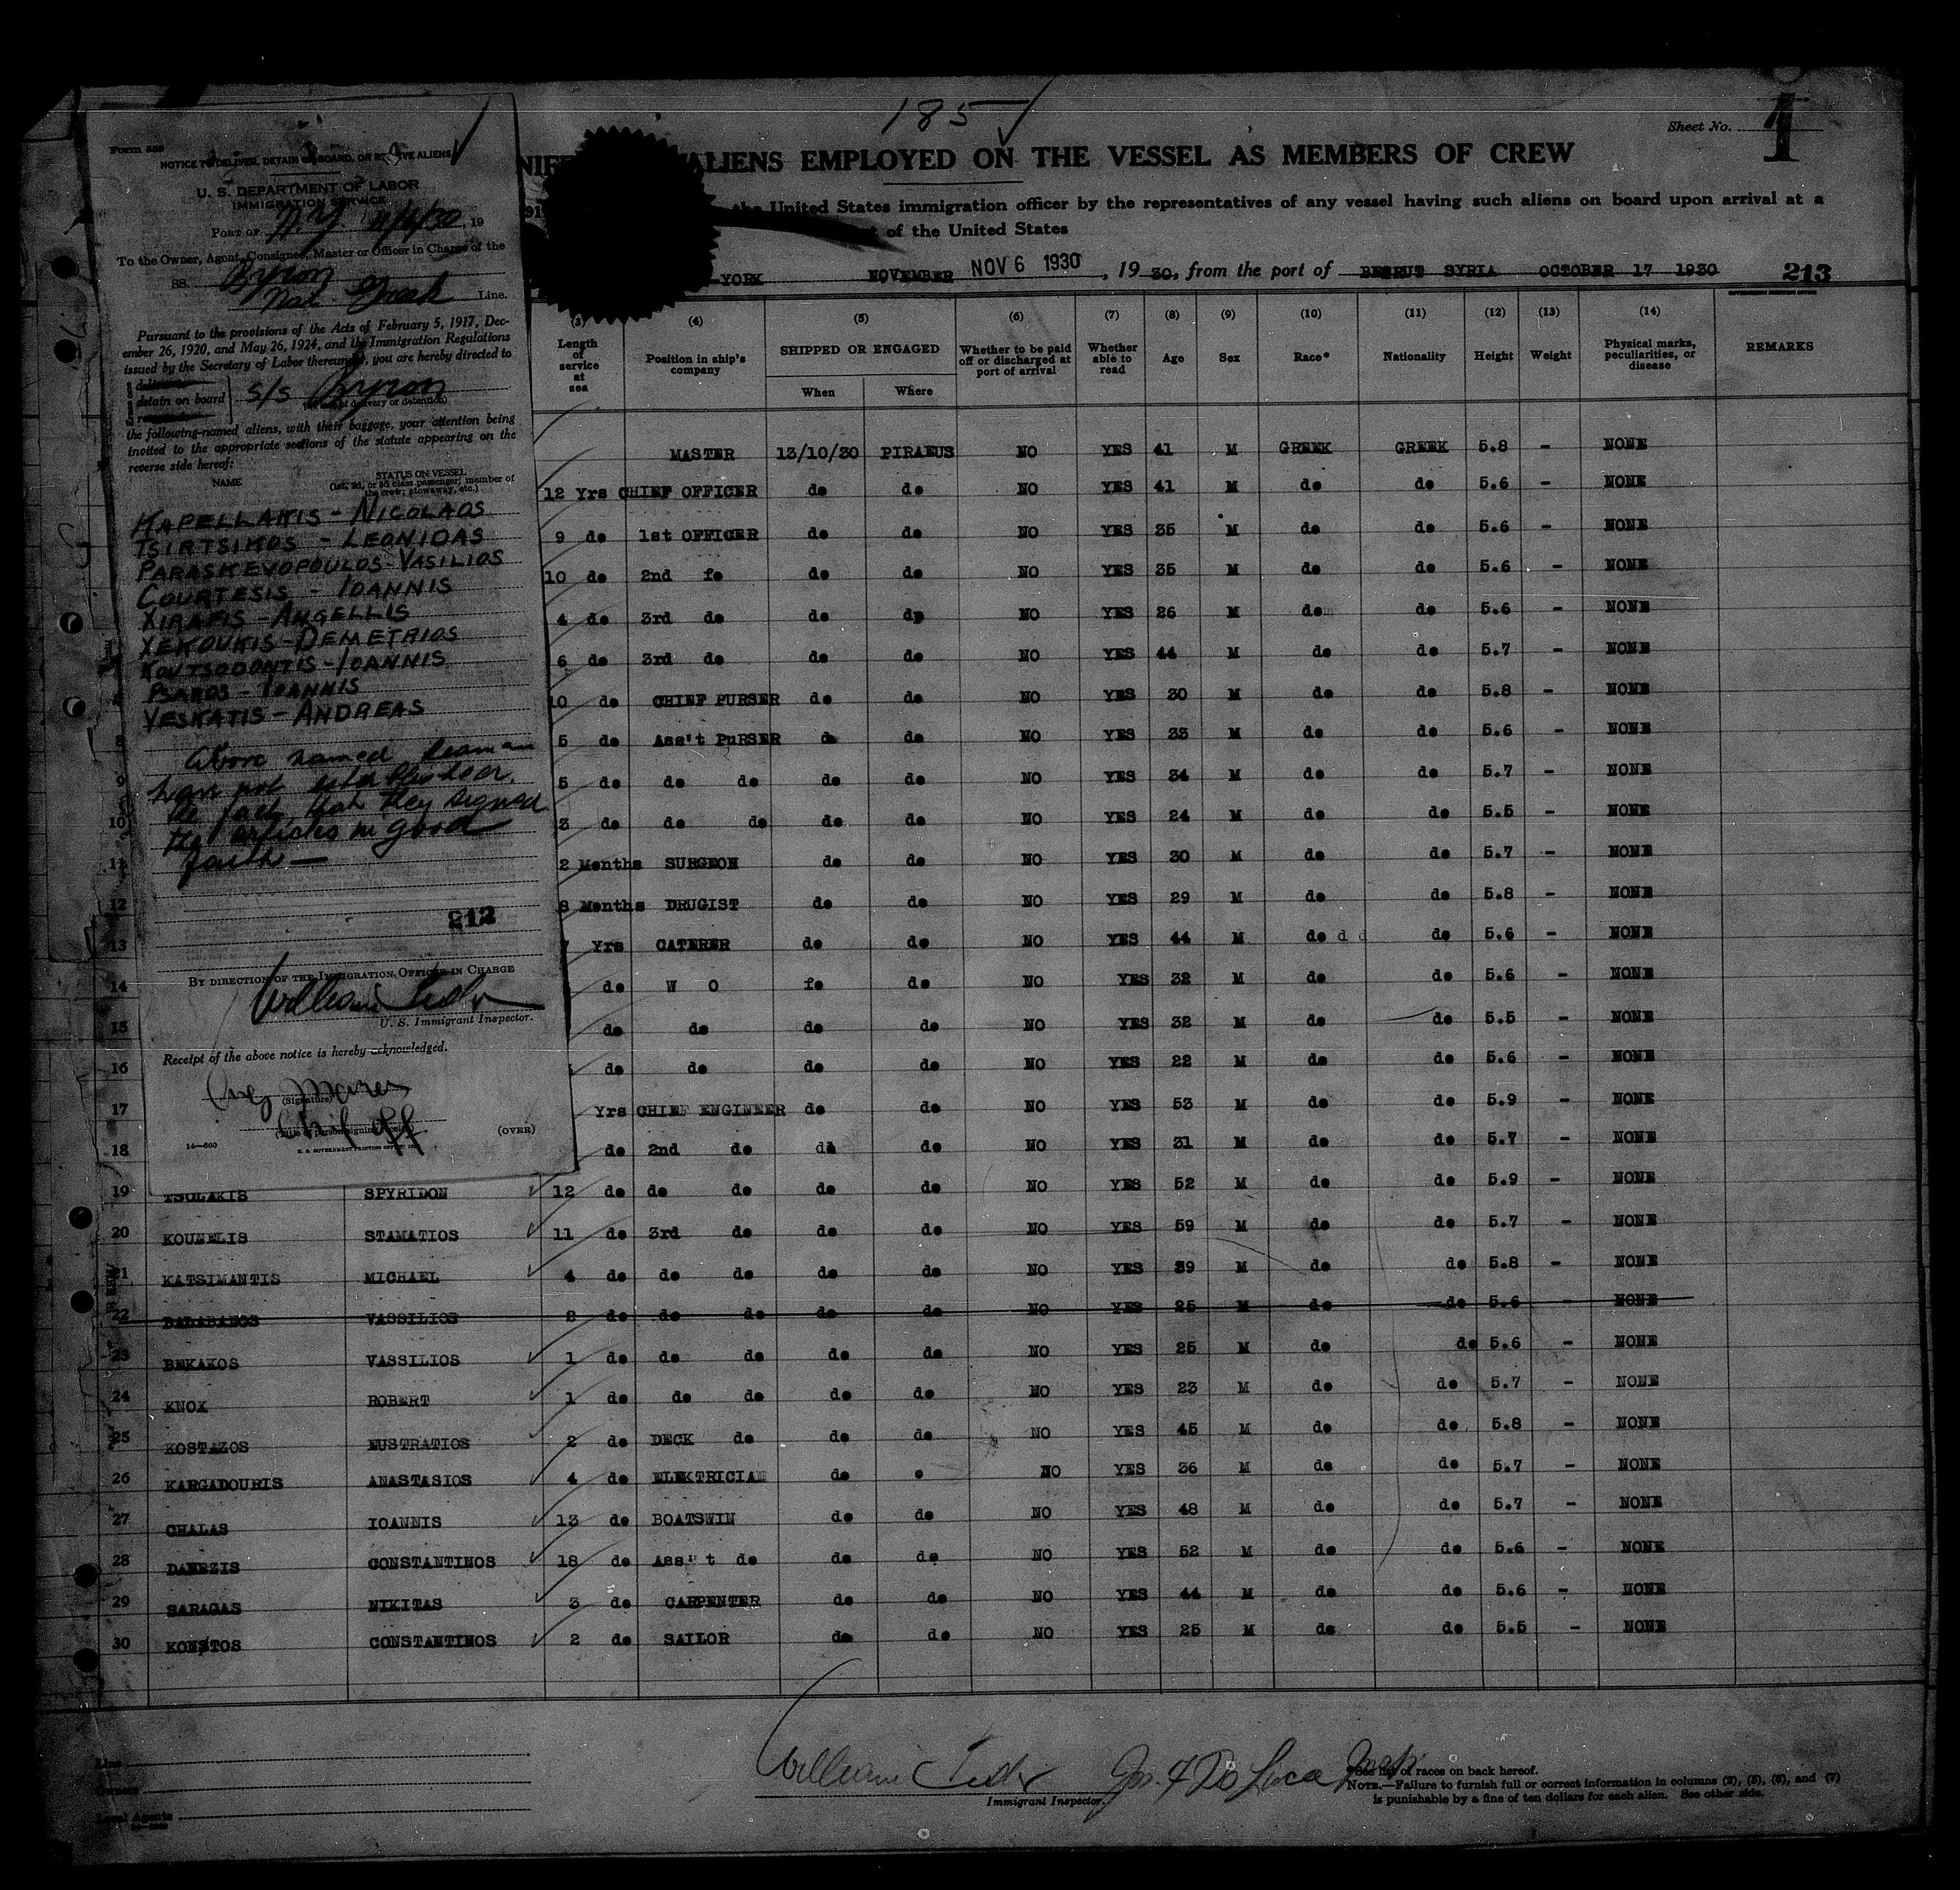 185
Sheet No. 1
ALIENS EMPLOYED ON THE VESSEL AS MEMBERS OF CREW
the United States immigration officer by the representatives of any vessel having such aliens on board upon arrival at a
of the United States
YORK NOVEMBER NOV 6 1930, 19 30, from the port of BEIRUT SYRIA OCTOBER 17 1930 213
Form 559
NOTICE TO DELIVER, DETAIN ON BOARD, OR REMOVE ALIENS
U. S. DEPARTMENT OF LABOR
IMMIGRATION SERVICE
PORT OF N.Y. 11/6/30, 19
To the Owner, Agent, Consignee, Master or Officer in Charge of the
SS. Byron
Nat. Greek Line.
Pursuant to the provisions of the Acts of February 5, 1917, Dec-
ember 26, 1920, and May 26, 1924, and the Immigration Regulations
issued by the Secretary of Labor thereunder, you are hereby directed to
detain on board S/S Byron
the following-named aliens, with their baggage, your attention being
invited to the appropriate sections of the statute appearing on the
reverse side hereof:
NAME STATUS ON VESSEL
(1st, 2d, or 3d class passenger; member of
the crew; stowaway, etc.)
KAPELLAKIS - NICOLAOS
TSIRTSIKOS - LEONIDAS
PARASKEVOPOULOS - VASILIOS
COURTESIS - IOANNIS
XIRAFIS - ANGELLIS
XEKOUKIS - DEMETRIOS
KOUTSODONTIS - IOANNIS
PSAROS - IOANNIS
VESKATIS - ANDREAS
Above named seamen
have not established
the fact that they signed
the articles in good
faith —
212
BY DIRECTION OF THE IMMIGRATION OFFICER IN CHARGE
U. S. Immigrant Inspector.
Receipt of the above notice is hereby acknowledged.
(Signature)
Chief Off
14—560 (OVER)
(3) (4) (5) (6) (7) (8) (9) (10) (11) (12) (13) (14)
Length of service at sea Position in ship's company SHIPPED OR ENGAGED When Where Whether to be paid off or discharged at port of arrival Whether able to read Age Sex Race* Nationality Height Weight Physical marks, peculiarities, or disease REMARKS
MASTER 13/10/30 PIRAEUS NO YES 41 M GREEK GREEK 5.8 - NONE
12 Yrs CHIEF OFFICER do do NO YES 41 M do do 5.6 - NONE
9 do 1st OFFICER do do NO YES 35 M do do 5.6 - NONE
10 do 2nd fo do do NO YES 35 M do do 5.6 - NONE
4 do 3rd do do dp NO YES 26 M do do 5.6 - NONE
6 do 3rd do do do NO YES 44 M do do 5.7 - NONE
10 do CHIEF PURSER do do NO YES 30 M do do 5.8 - NONE
5 do Ass't PuRSER do do NO YES 33 M do do 5.6 - NONE
9 5 do do do do do NO YES 34 M do do 5.7 - NONE
10 3 do do do do do NO YES 24 M do do 5.5 - NONE
11 2 Months SURGEON do do NO YES 30 M do do 5.7 - NONE
12 8 Months DRUGIST do do NO YES 29 M do do 5.8 - NONE
13 7 Yrs CATERER do do NO YES 44 M do d d do 5.6 - NONE
14 do W O fo do NO YES 32 M do do 5.6 - NONE
15 do do do do NO YES 32 M do do 5.5 - NONE
16 do do do do NO YES 22 M do do 5.6 - NONE
17 Yrs CHIEF ENGINEER do do NO YES 53 M do do 5.9 - NONE
18 do 2nd do do do NO YES 31 M do do 5.7 - NONE
19 TSOLAKIS SPYRIDON 12 do do do do do NO YES 52 M do do 5.9 - NONE
20 KOUNELIS STAMATIOS 11 do 3rd do do do NO YES 59 M do do 5.7 - NONE
21 KATSIMANTIS MICHAEL 4 do do do do do NO YES 39 M do do 5.8 - NONE
22 BALABANOS VASSILIOS 2 do do do do do NO YES 25 M do do 5.6 - NONE
23 BEKAKOS VASSILIOS 1 do do do do do NO YES 25 M do do 5.6 - NONE
24 KNOX ROBERT 1 do do do do do NO YES 23 M do do 5.7 - NONE
25 KOSTAZOS EUSTRATIOS 2 do DECK do do do NO YES 45 M do do 5.8 - NONE
26 KARGADOURIS ANASTASIOS 4 do ELEKTRICIAN do o NO YES 36 M do do 5.7 - NONE
27 CHALAS IOANNIS 13 do BOATSWIN do do NO YES 48 M do do 5.7 - NONE
28 DANEZIS CONSTANTINOS 18 do Ass't do do do NO YES 52 M do do 5.6 - NONE
29 SARAGAS NIKITAS 3 do CARPENTER do do NO YES 44 M do do 5.6 - NONE
30 KONSTOS CONSTANTINOS 2 do SAILOR do do NO YES 25 M do do 5.5 - NONE
Line
Owners
Local Agents
Immigrant Inspector.
*See list of races on back hereof.
NOTE.—Failure to furnish full or correct information in columns (2), (5), (6), and (7)
is punishable by a fine of ten dollars for each alien. See other side.